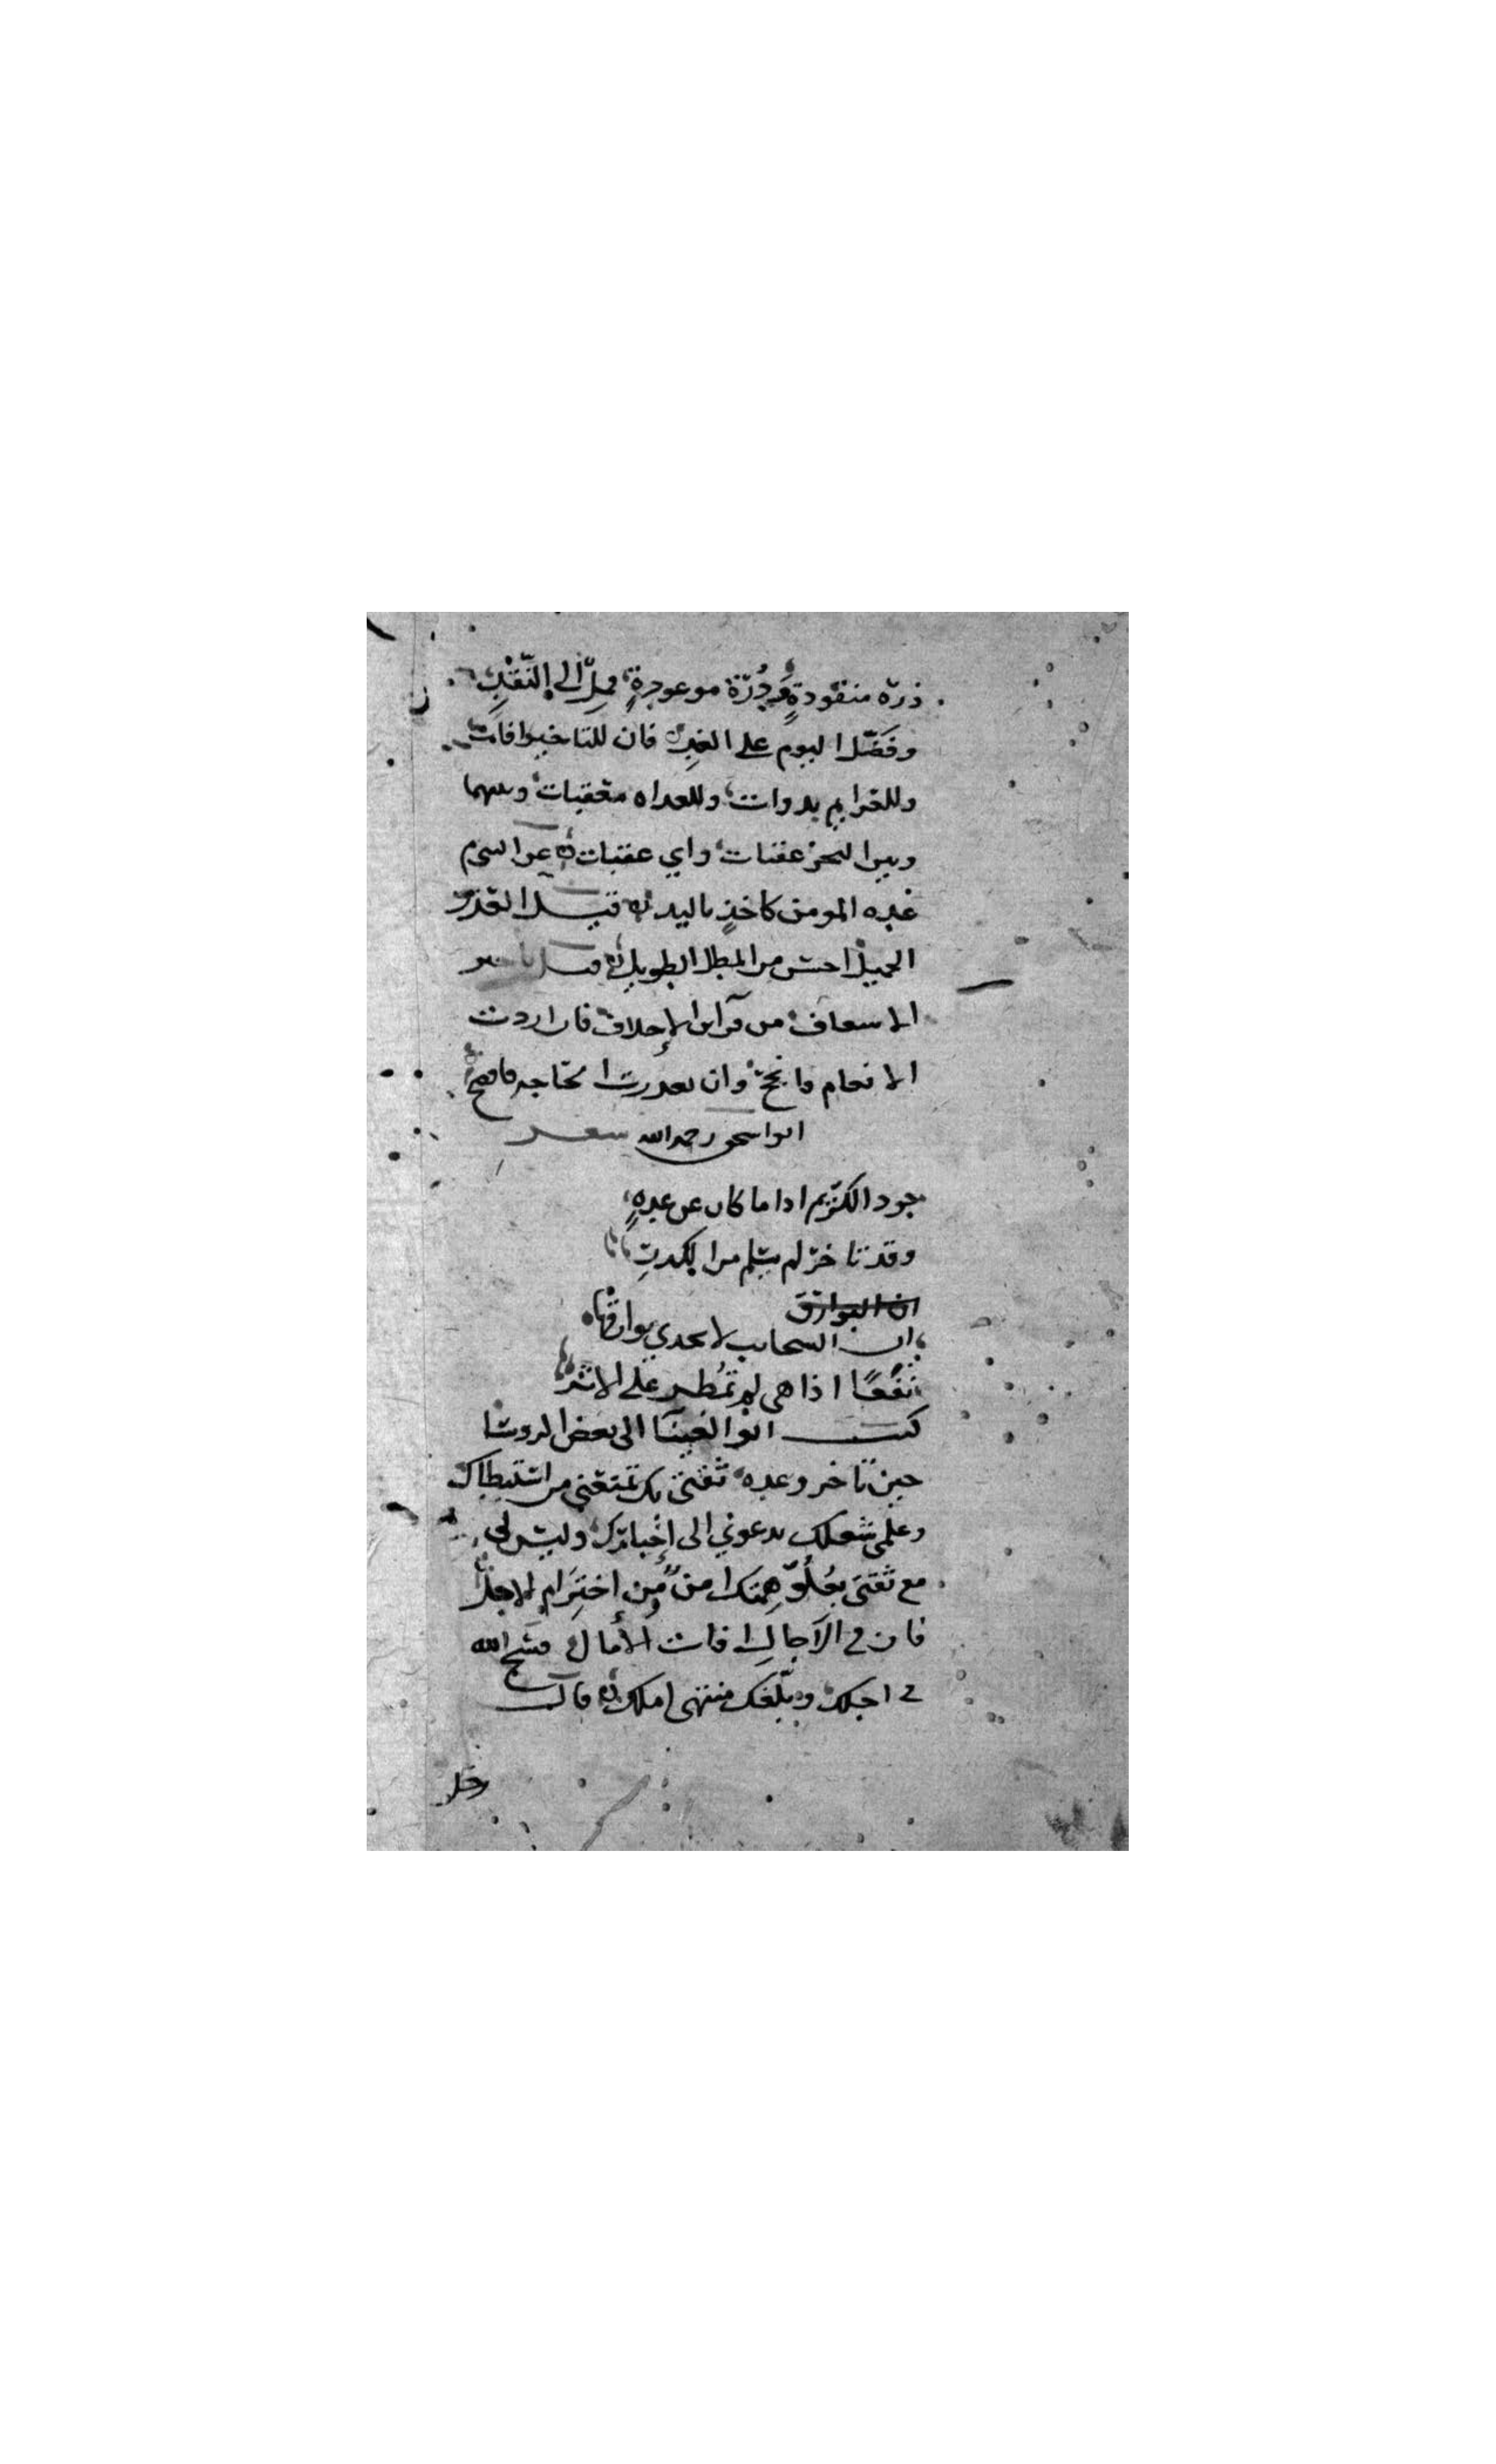 ذرة منقودةٍ وَدُرّة موعودةٍ فمِلْ الى النّقْدِ
وفَضّل اليوم على الغدِ فان للتاخير افات
وللعزايم بدوات وللعداه معقبات وبينهما
وبين النجز عقبات واي عقبات
عده المومن كاخذٍ باليد
الجميل احسن من المطل الطويل
الاسعاف من قرآين الإخلاف فان اردت
الانعام فانجح وان تعذرت الحاجه فافصح
ابو اسحق رحمه الله شعر
جود الكريم اذا ما كان عن عدهٍ
وقد تاخر لم يسلم من الكدرِ
ان البوارق
ان السحايب لا تجدي بوارقها
نَفْعًا اذا هي لم تُمطر على الاثر
كتب ابو العينآ الى بعض الروسا
حين تاخر وعده ثقتى بك تمنعنى من استبطايك
وعلمى بشغلك يدعوني الى إذكارك وليس لى
مع ثقتى بعُلُوّ همتك امن من إخترام الاجل
فان في الآجال افات الأمال فسح الله
في اجلك وبلّغك منتهى املك قال
رجل